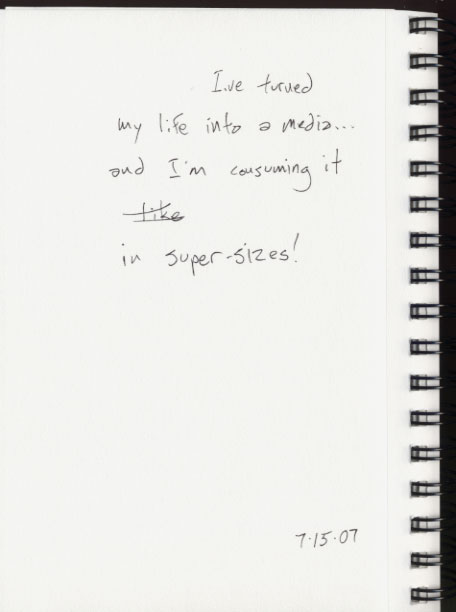 I've turned
my life into a media...
and I'm consuming it
like
in super-sizes!
7.15.07